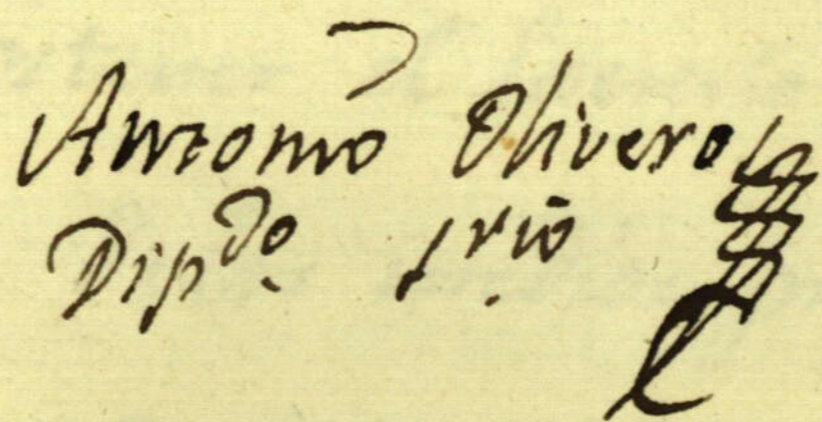 Antonio Olivero
Dipdo. srio